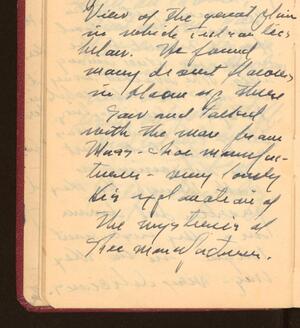 View of the great plain
in which Indian lies
below. We found
many desert flowers
in bloom up there
Saw and talked
with the man from
Mass - shoe manufac-
turer - very lovely
his explanation of
the mysteries of
shoe manufacturer.